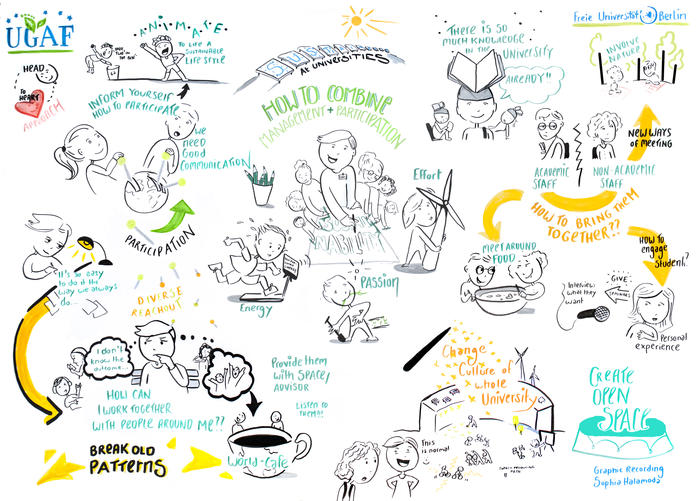 UGAF
ANIMATE
TO LIVE A
SUSTAINABLE
LIFE STYLE
HEAD
TO
HEART
APPROACH
INFORM YOURSELF
HOW TO PARTICIPATE
WE
NEED
GOOD
COMMUNICATION
PARTICIPATION
AT UNIVERSITIES
HOW TO COMBINE
MANAGEMENT + PARTICIPATION
Effort
Energy
PASSION
THERE IS SO
MUCH KNOWLEDGE
IN THE UNIVERSITY
ALREADY"
Freie Universität Berlin
INVOLVE
NATURE
NEW WAYS
OF MEETING
ACADEMIC
STAFF
NON-ACADEMIC
STAFF
HOW TO BRING THEM
TOGETHER??
MEET AROUND
FOOD
HOW TO
ENGAGE
STUDENT?
Interview
what they
want
GIVE
Personal
experience
It's so easy
to do it the
way we always
do...
DIVERSE
REACHOUT
I don't
know the
outcome...
HOW CAN
I WORK TOGETHER
WITH PEOPLE AROUND ME??
BREAK OLD
PATTERNS
Provide them
WITH SPACE/
ADVISOR
LISTEN TO
THEM!!
World-Café
Change
Culture of
whole
University
This
is normal
CREATE
OPEN
SPACE
Graphic Recording
Sophia Halamoda